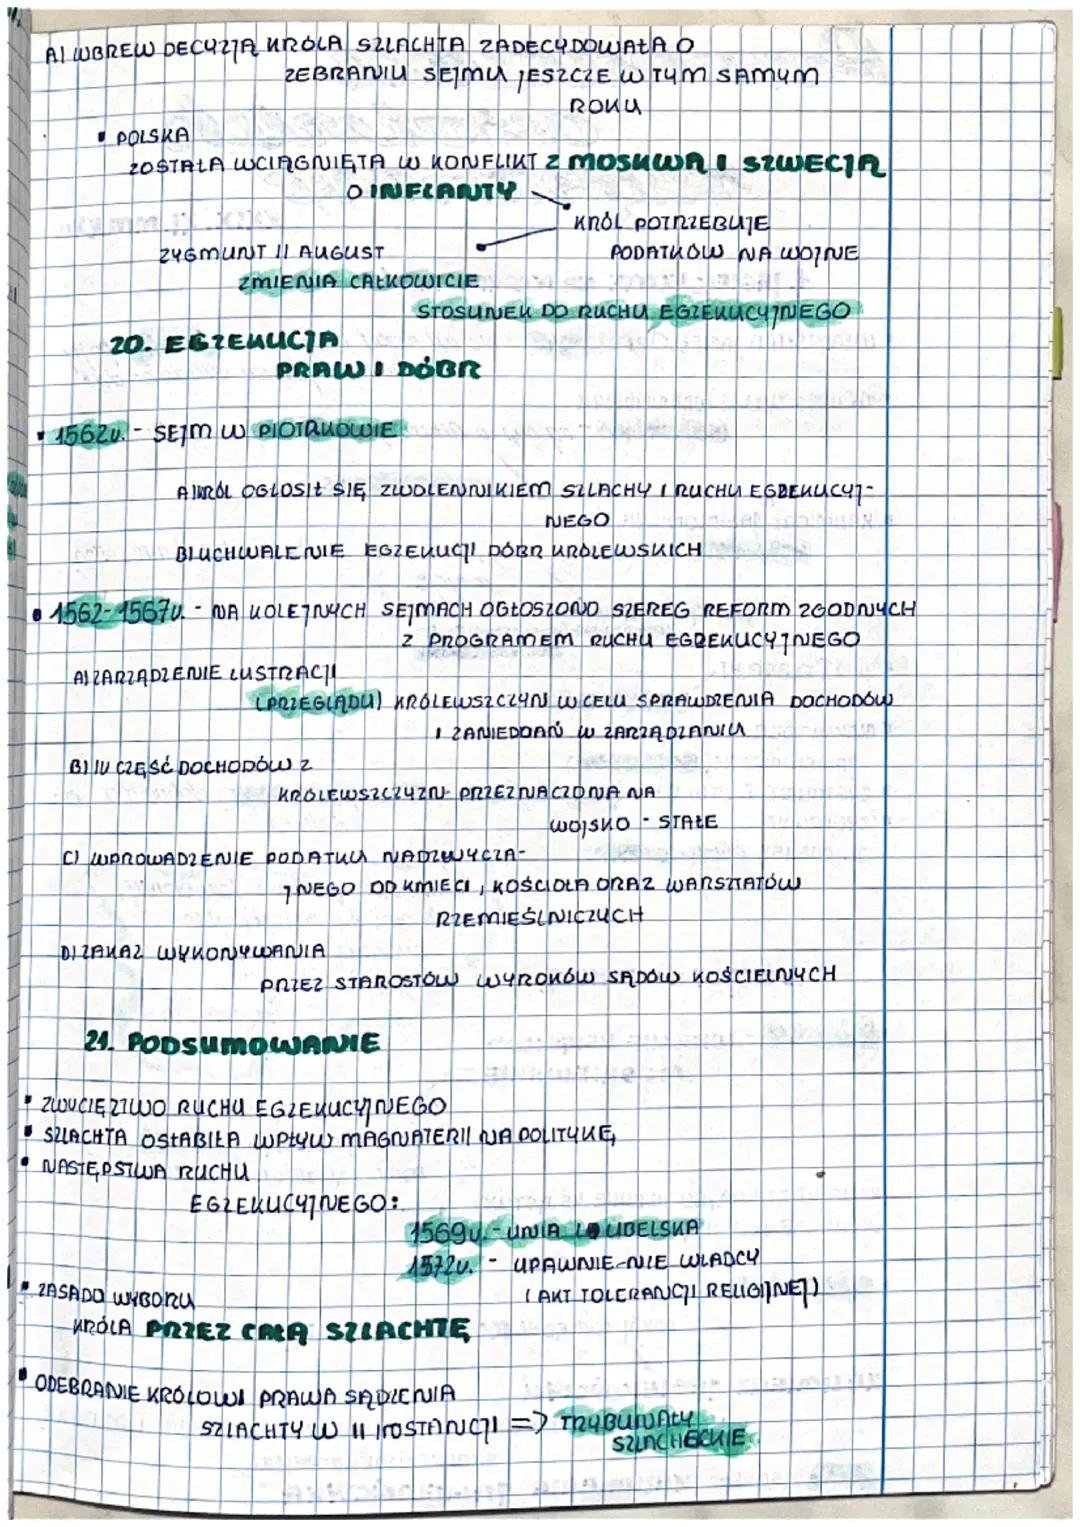 A) WBREW DECYZJĄ KRÓLA SZLACHTA ZADECYDOWAŁA O
ZEBRANIU SEJMU JESZCZE W TYM SAMYM
ROKU
▪ POLSKA
ZOSTAŁA WCIĄGNIĘTA W KONFLIKT Z MOSKWĄ I SZWECJĄ
O INFLANTY
KRÓL POTRZEBUJE
ZYGMUNT II AUGUST
PODATKÓW NA WOJNE
ZMIENIA CAŁKOWICIE
STOSUNEK DO RUCHU EGZEKUCYJNEGO
20. EGZEKUCJA
PRAW I DÓBR
▪ 1562r. - SEJM W PIOTRKOWIE
A) KRÓL OGŁOSIŁ SIĘ ZWOLENNIKIEM SZLACHY I RUCHU EGZEKUCYJ-
NEGO
B) UCHWALENIE EGZEKUCJI DÓBR KRÓLEWSKICH
▪ 1562-1567r. - NA KOLEJNYCH SEJMACH OGŁOSZONO SZEREG REFORM ZGODNYCH
Z PROGRAMEM RUCHU EGZEKUCYJNEGO
A) ZARZĄDZENIE LUSTRACJI
(PRZEGLĄDU) KRÓLEWSZCZYN W CELU SPRAWDZENIA DOCHODÓW
I ZANIEDBAŃ W ZARZĄDZANIU
B) IV CZĘŚĆ DOCHODÓW Z
KRÓLEWSZCZYZN PRZEZNACZONA NA
WOJSKO - STAŁE
C) WPROWADZENIE PODATKU NADZWYCZA-
JNEGO OD KMIECI, KOŚCIOŁA ORAZ WARSZTATÓW
RZEMIEŚLNICZYCH
D) ZAKAZ WYKONYWANIA
PRZEZ STAROSTÓW WYROKÓW SĄDÓW KOŚCIELNYCH
21. PODSUMOWANIE
▪ ZWYCIĘZTWO RUCHU EGZEKUCYJNEGO
▪ SZLACHTA OSŁABIŁA WPŁYW MAGNATERII NA POLITYKĘ
▪ NASTĘPSTWA RUCHU
EGZEKUCYJNEGO:
1569r. - UNIA LUBELSKA
1572r. - UPAWNIE-NIE WŁADCY
(AKT TOLERANCJI RELIGIJNEJ)
▪ ZASADO WYBORU
KRÓLA PRZEZ CAŁĄ SZLACHTĘ
▪ ODEBRANIE KRÓLOWI PRAWA SĄDZENIA
SZLACHTY W II INSTANCJI => TRYBUNAŁY
SZLACHECKIE